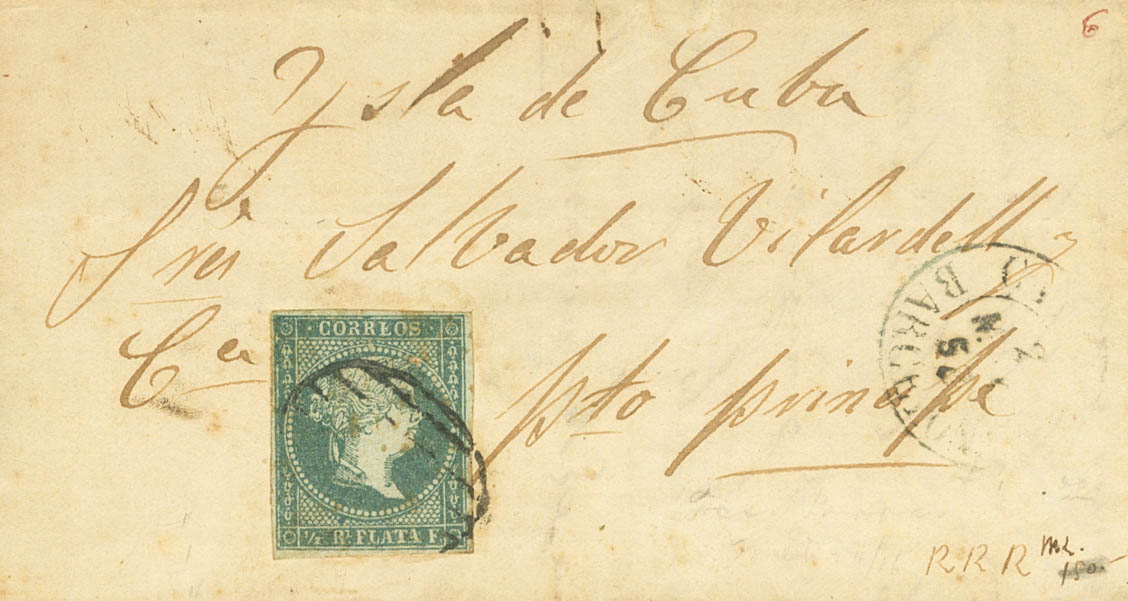 6
Ysla de Cuba
Sres Salvador Vilardell y
Ca
Pto principe
CORREOS
½ Rl. PLATA F.
BARCELONA
RRR
150